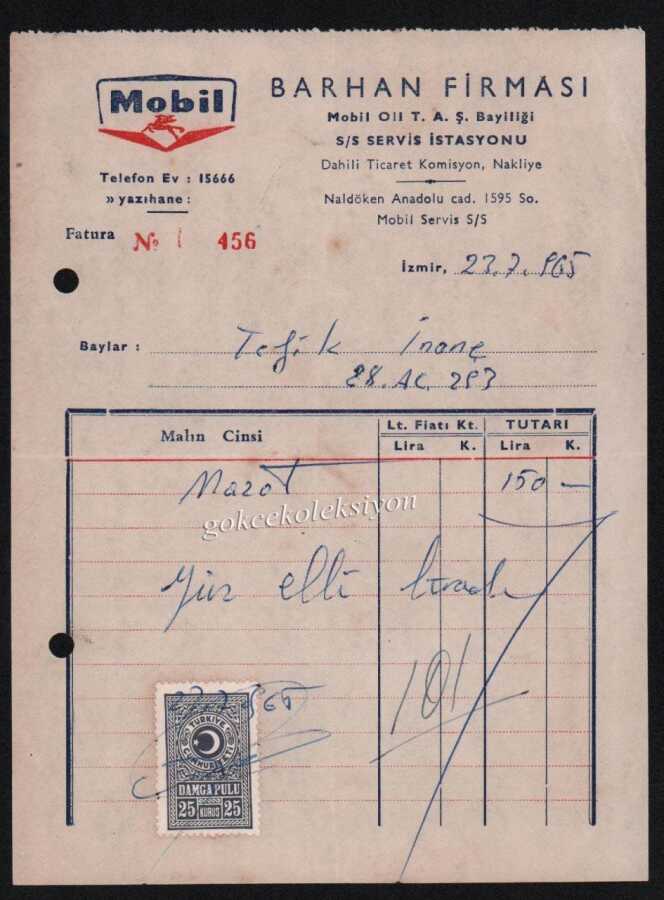 BARHAN FİRMASI
Mobil
Mobil Oil T. A. Ş. Bayiliği
S/S SERVİS İSTASYONU
Dahili Ticaret Komisyon, Nakliye
Telefon Ev : 15666
» yazıhane :
Naldöken Anadolu cad. 1595 So.
Mobil Servis S/S
Fatura № 456
İzmir, 23.7.965
Baylar : Tefik İnanç
28. AC. 293
Malın Cinsi
Lt. Fiatı Kt. TUTARI
Lira K. Lira K.
Mazot 150 —
gokcekoleksiyon
Yüz elli liradır
101
23.7.965
TÜRKİYE CUMHURİYETİ
DAMGA PULU
25 KURUŞ 25